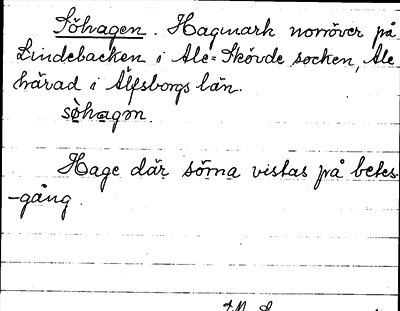 Söhagen. Hagmark norröver på
Lindebacken i Ale-Skövde socken, Ale
härad i Älfsborgs län.
söhagm.
Hage där söma vistas på betes-
-gång.